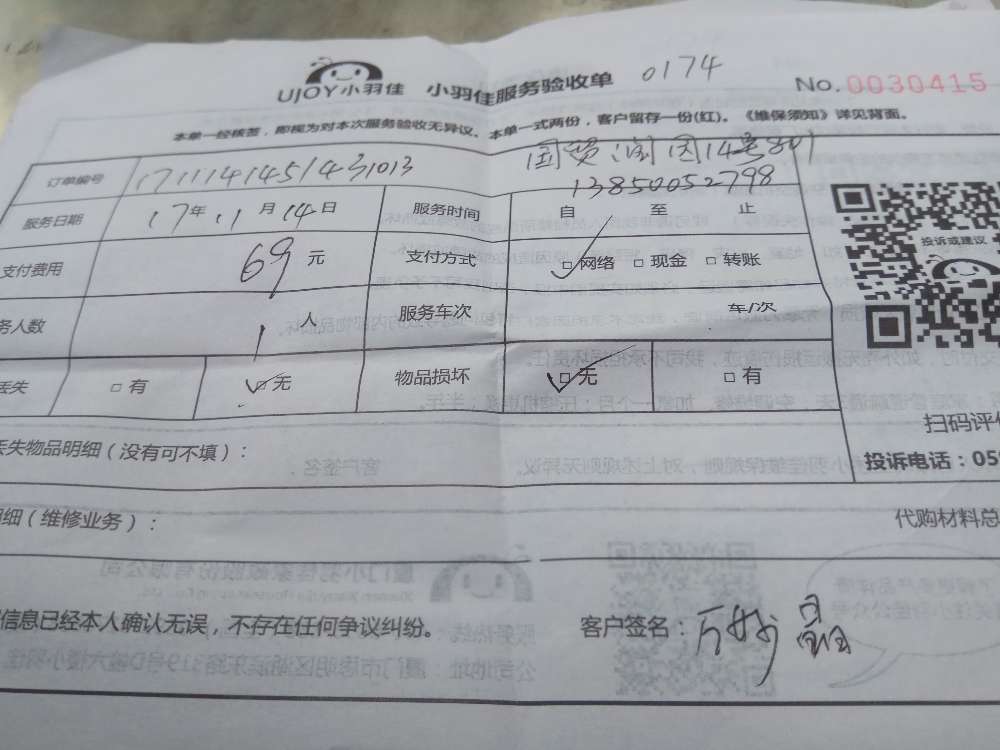 UJOY小羽佳 小羽佳服务验收单 0174 No.0030415
本单一经核签，即视为对本次服务验收无异议。本单一式两份，客户留存一份(红)。《维保须知》详见背面。
订单编号 1711141451431013 国贸润园14号801
13850052798
服务日期 17年11月14日 服务时间 自 至 止
支付费用 69元 支付方式 □网络 □现金 □转账
务人数 1人 服务车次 车/次
丢失 □有 □无 物品损坏 □无 □有
投诉或建议
扫码评价
投诉电话：059
丢失物品明细（没有可不填）：
细（维修业务）： 代购材料总
信息已经本人确认无误，不存在任何争议纠纷。 客户签名：